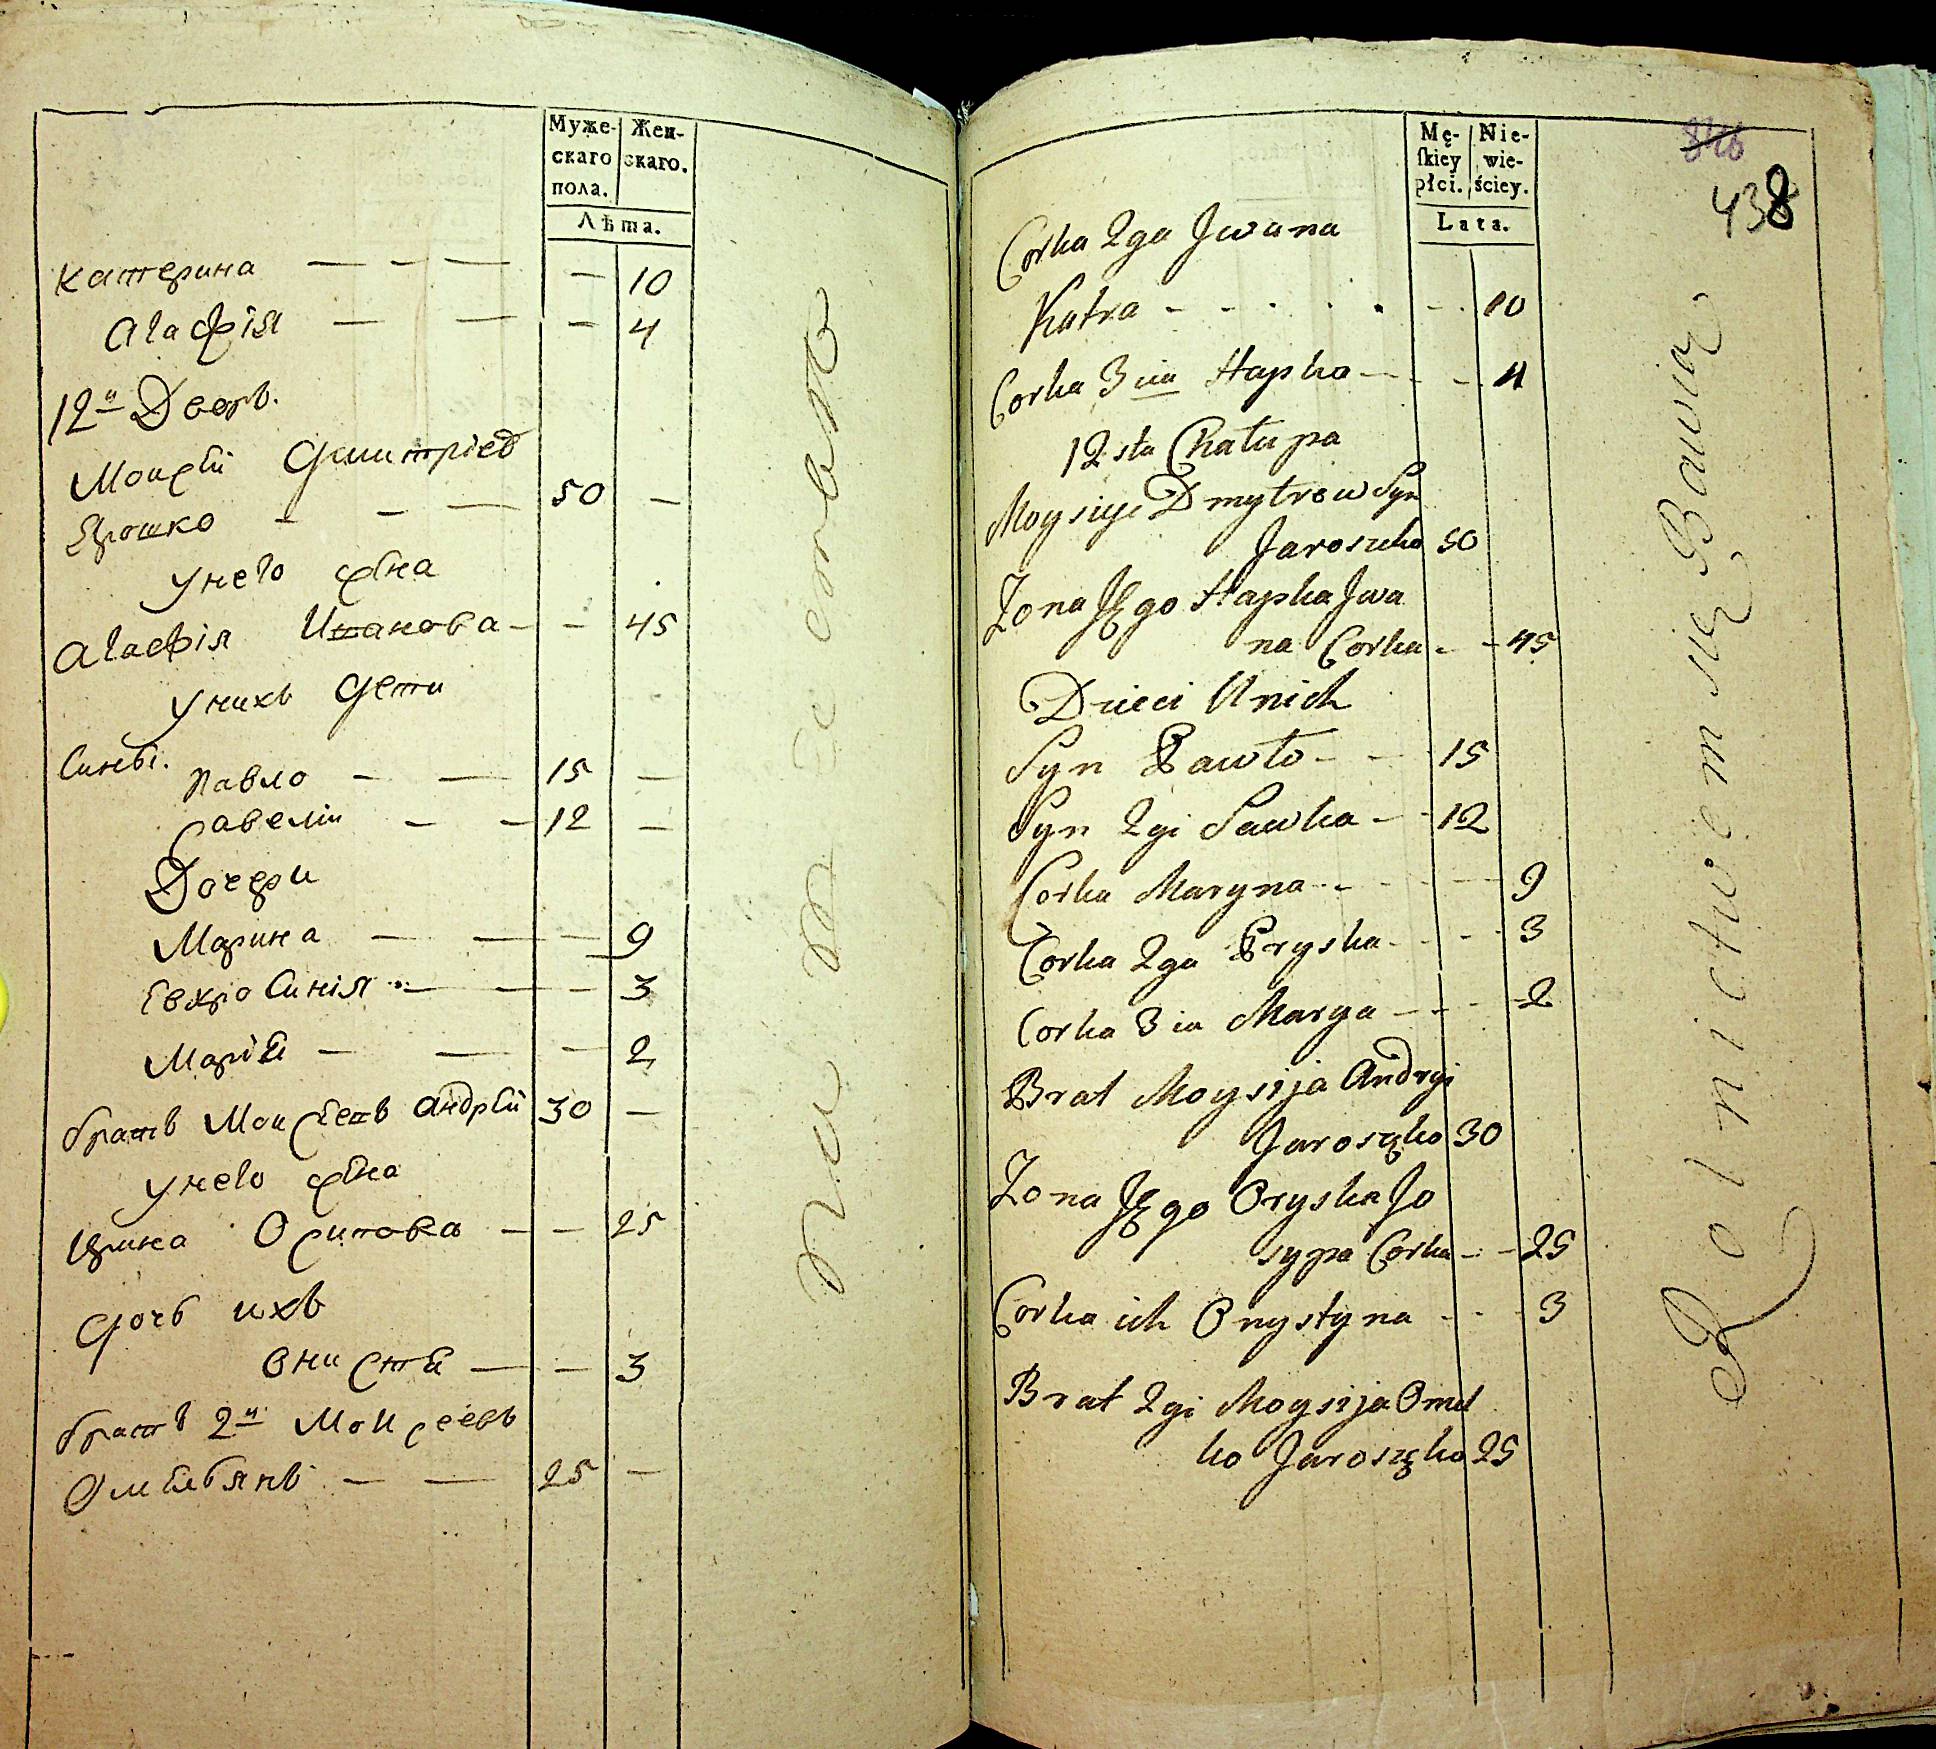 Муже-
скаго
пола.
Жен-
скаго.
Лѣта.
Катерина — — — — 10
Агафія — — — 4
12й Дворъ.
Моисѣй Дмитріев
Ерошко — — — 50 —
у него жена
Агафія Иванова — — 45
у нихъ дети
Сини:
Павло — — 15 —
Савелій — — 12 —
Дочери
Марина — — — 9
Евхросинія — — — 3
Марія — — — 2
братъ Моисеевъ Андрѣй 30 —
у него жена
Ирина Осипова — — 25
дочь ихъ
Онисія — — 3
братъ 2й Моисеевъ
Омельянъ — — 25 —
Mę-
skiey
płci.
Nie-
wie-
ściey.
Lata.
438
Corka 2ga Jwana
Katra - - - - - - - 10
Corka 3cia Hapka - - - 4
12sta Chałupa
Moysiye Dmytrow Syn
Jaroszko 50
Zona Jego Hapka Jwa
na Corka - - 45
Dzieci Unich
Syn Pawło - - 15
Syn 2gi Sawka - - 12
Corka Maryna - - - 9
Corka 2ga Pryska - - - 3
Corka 3cia Marya - - - 2
Brat Moysija Andryi
Jaroszko 30
Zona Jego Oryska Jo
sypa Corka - - 25
Corka ich Onystyna - - - 3
Brat 2gi Moysija Omel
ko Jaroszko 25
Rolnictwem się Bawią